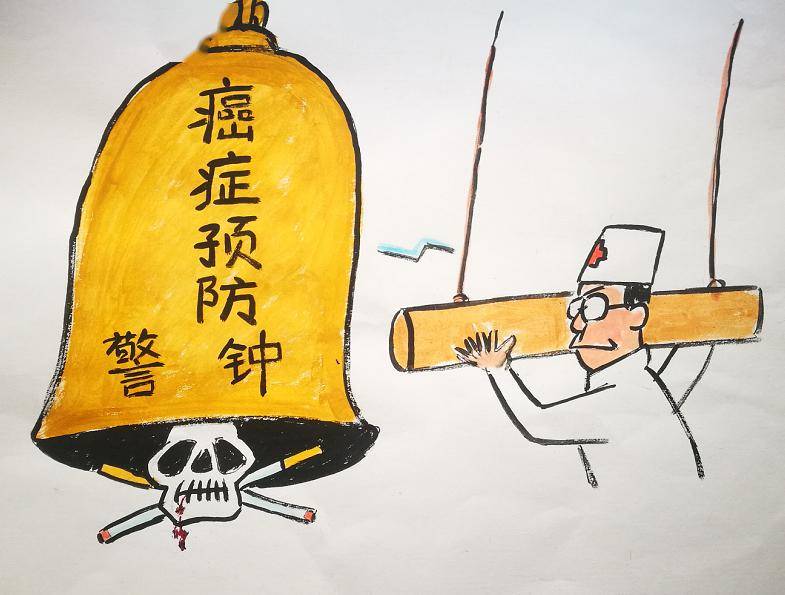 癌症预防
警钟